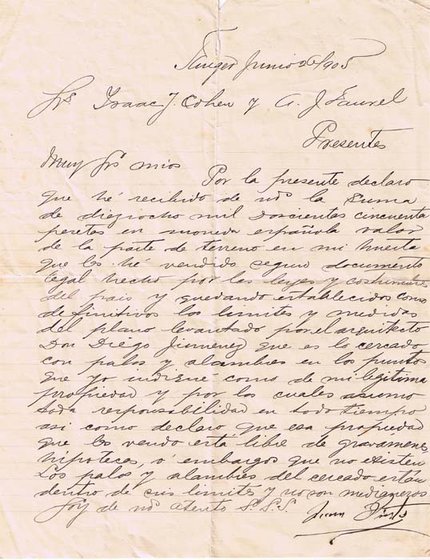 Tanger Junio de 1905
Srs Isaac J Cohen y A. J
Presentes
Muy Srs mios
Por la presente declaro
que hé recibido de Vds la Suma
de dieziocho mil doscientas cincuenta
pesetas en moneda española valor
de la parte de terreno en mi huerta
que les hé vendido segun documento
legal hecho por las leyes y costumbres
del pais y quedando establecidos como
definitivos los limites y medidas
del plano levantado por el arquitecto
Don Diego Jimenez que es lo cercado
con palos y alambres en los puntos
que yo indique como de mi legitima
propriedad y por los cuales asumo
toda responsabilidad en todo tiempo
asi como declaro que esa propiedad
que les vendo está libre de gravamenes
hipotecas, ó embargos que no existen
Los palos y alambres del cercado están
dentro de sus limites y no son medianeros
Soy de Vds atento S.S.S.
Juan